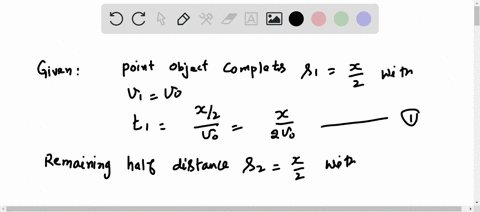 Given: point object complets S1 = x/2 with
v1 = v0
t1 = (x/2)/v0 = x/2v0 ——— ①
Remaining half distance S2 = x/2 with